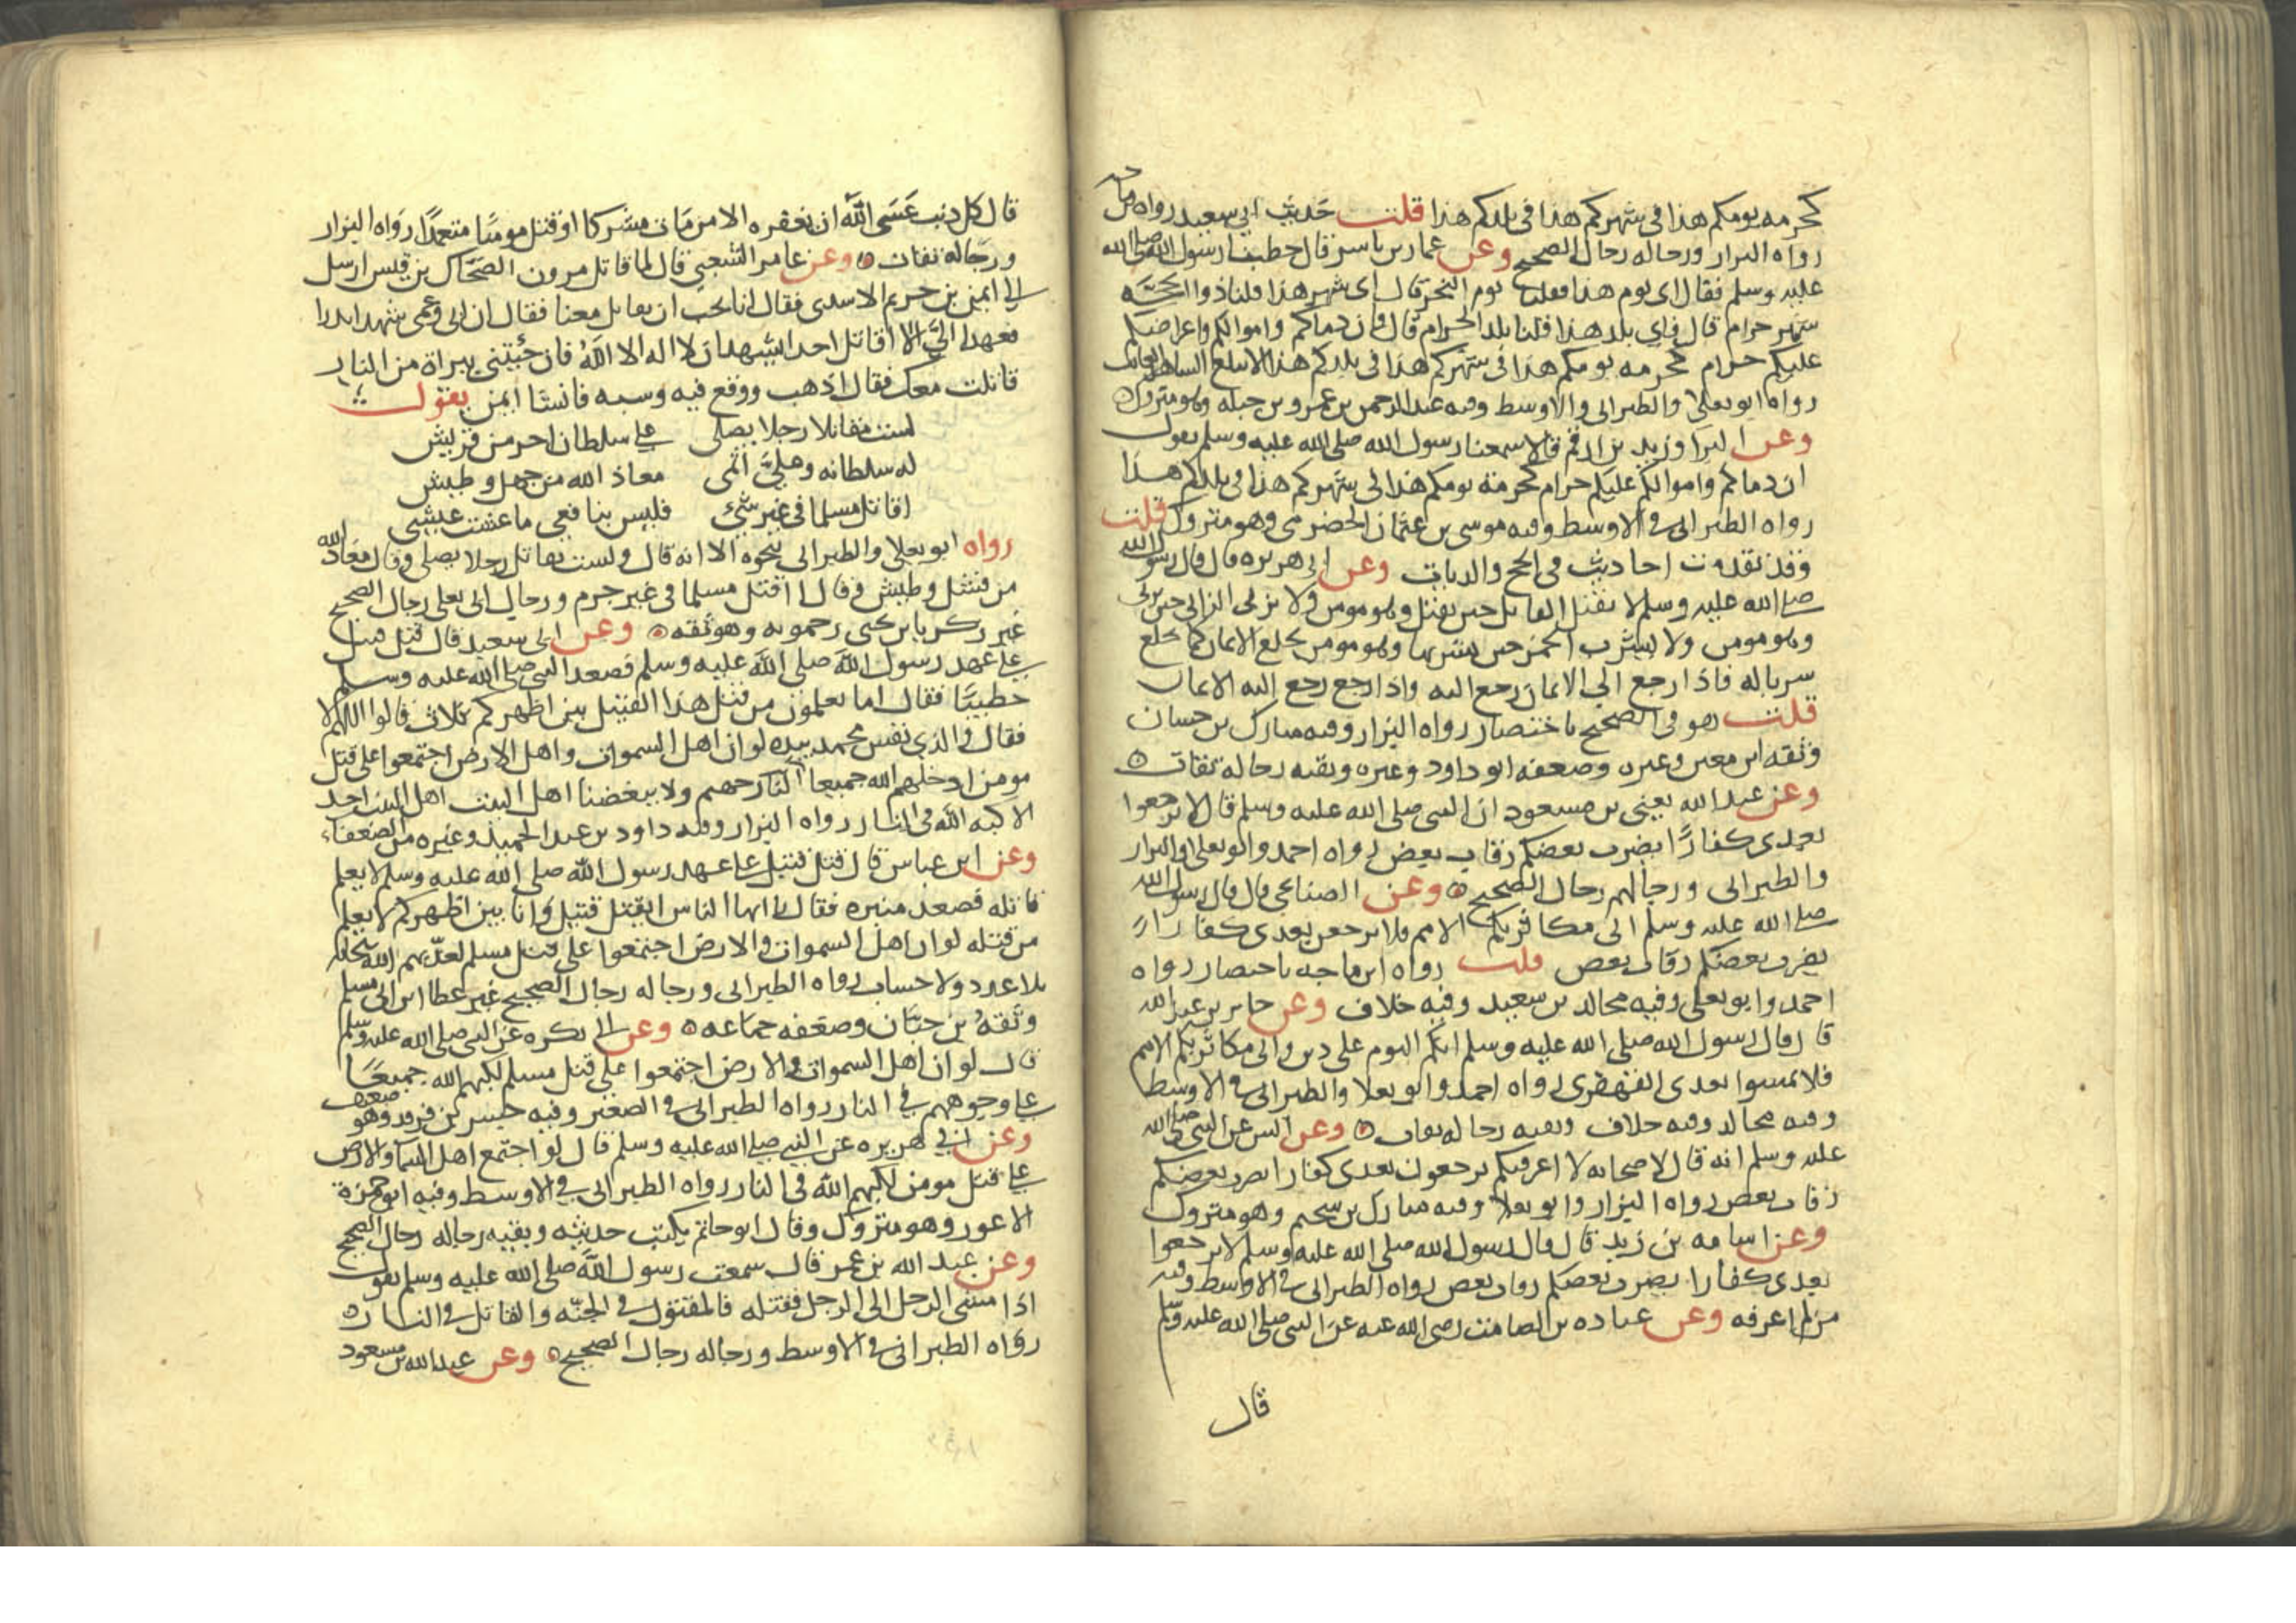 كحرمه يومكم هذا في شهركم هذا في بلدكم هذا قلت حديث ابي سعيد رواه ماجه
رواه البزار ورجاله رجال الصحيح وعن عمار بن ياسر قال خطبنا رسول الله صلى الله
عليه وسلم فقال اي يوم هذا فقلنا يوم النحر قال اي شهر هذا قلنا ذوا الحجه
شهر حرام قال فاي بلد هذا قلنا بلد الحرام قال فان دماكم واموالكم واعراضكم
عليكم حرام كحرمه يومكم هذا في شهركم هذا في بلدكم هذا الا ليبلغ الشاهد الغائب
رواه ابو يعلى والطبراني في الاوسط وفيه عبد الرحمن بن عمرو بن جبله وهو متروك
وعن البرا وزيد بن ارقم قالا سمعنا رسول الله صلى الله عليه وسلم يقول
ان دماكم واموالكم عليكم حرام كحرمة يومكم هذا في شهركم هذا في بلدكم هذا
رواه الطبراني في الاوسط وفيه موسى بن عثمان الحضرمي وهو متروك قلت
وقد تقدمت احاديث في الحج والديات وعن ابي هريره قال قال رسول الله
صلى الله عليه وسلم لا يقتل القاتل حين يقتل وهو مومن ولا يزني الزاني حين يزني
وهو مومن ولا يشرب الخمر حين يشربها وهو مومن يخلع الايمان كما يخلع
سرباله فاذا رجع الي الايمان رجع اليه واذا رجع رجع اليه الايمان
قلت هو في الصحيح باختصار رواه البزار وفيه مبارك بن حسان
وثقه ابن معين وغيره وضعفه ابو داود وغيره وبقيه رجاله ثقات
وعن عبد الله يعني بن مسعود ان النبي صلى الله عليه وسلم قال لا ترجعوا
بعدي كفارًا يضرب بعضكم رقاب بعض رواه احمد وابو يعلى والبزار
والطبراني ورجالهم رجال الصحيح وعن الصنابحي قال قال رسول الله
صلى الله عليه وسلم اني مكاثر بكم الامم فلا ترجعن بعدي كفارا
يضرب بعضكم رقاب بعض قلت رواه ابن ماجه باختصار رواه
احمد وابو يعلى وفيه مجالد بن سعيد وفيه خلاف وعن جابر بن عبد الله
قال قال رسول الله صلى الله عليه وسلم انكم اليوم على دين واني مكاثر بكم الامم
فلا تمشوا بعدي القهقرى رواه احمد وابو يعلا والطبراني في الاوسط
وفيه مجالد وفيه خلاف وبقيه رجاله ثقات وعن انس عن النبي صلى الله
عليه وسلم انه قال لاصحابه لا اعرفنكم ترجعون بعدي كفارا يضرب بعضكم
رقاب بعض رواه البزار وابو يعلا وفيه مبارك بن سحيم وهو متروك
وعن اسامه بن زيد قال قال رسول الله صلى الله عليه وسلم لا ترجعوا
بعدي كفارا يضرب بعضكم رقاب بعض رواه الطبراني في الاوسط وفيه
من لم اعرفه وعن عباده بن الصامت رضي الله عنه عن النبي صلى الله عليه وسلم
قال
قال كل ذنب عَسَى الله ان يغفره الا من مات مشركا او قتل مومنًا متعمدًا رواه البزار
ورجاله ثقات وعن عامر الشعبي قال لما قاتل مرون الضحاك بن قيس ارسل
الى ايمن بن خريم الاسدي فقال انا نحب ان تقاتل معنا فقال ان ابي وعمي شهدا بدرا
فعهدا اليَّ الا اقاتل احدا يشهد ان لا اله الا الله فان جئتني ببراة من النار
قاتلت معك فقال اذهب ووقع فيه وسبه فانشا ايمن يقول
لست مقاتلا رجلا يصلى على سلطان اخر من قريش
له سلطانه وعليَّ اثمي معاذ الله من جهل وطيش
اقاتل مسلما في غير شيء فليس بنافعي ما عشت عيشي
رواه ابو يعلى والطبراني بنحوه الا انه قال ولست بقاتل رجلا يصلي وقال معاذ الله
من فشل وطيش وقال اقتل مسلما في غير جرم ورجال ابي يعلى رجال الصحيح
غير زكريا بن يحيى رحمويه وهو ثقه وعن ابي سعيد قال قتل قتيل
على عهد رسول الله صلى الله عليه وسلم فصعد النبي صلى الله عليه وسلم
خطيبًا فقال اما تعلمون من قتل هذا القتيل بين اظهركم ثلاث قالوا اللهم لا
فقال والذي نفس محمد بيده لو ان اهل السموات واهل الارض اجتمعوا على قتل
مومن ادخلهم الله جميعا النار جهنم ولا يبغضنا اهل البيت اهل البيت احد
الا كبه الله في النار رواه البزار وفيه داود بن عبد الحميد وغيره من الضعفاء
وعن ابن عباس قال قتل قتيل على عهد رسول الله صلى الله عليه وسلم لا يعلم
قاتله فصعد منبره فقال يا ايها الناس ايقتل قتيل وانا بين اظهركم لا يعلم
من قتله لو ان اهل السموات والارض اجتمعوا على قتل مسلم لعذبهم الله
بلا عدد ولا حساب رواه الطبراني ورجاله رجال الصحيح غير عطا بن ابي مسلم
وثقه بن حبان وضعفه جماعه وعن ابي بكره عن النبي صلى الله عليه وسلم
قال لو ان اهل السموات والارض اجتمعوا على قتل مسلم لكبهم الله جميعًا
على وجوههم في النار رواه الطبراني في الصغير وفيه جسر بن فرقد وهو ضعيف
وعن ابي هريره عن النبي صلى الله عليه وسلم قال لو اجتمع اهل السما والارض
على قتل مومن لكبهم الله في النار رواه الطبراني في الاوسط وفيه ابو حمزة
الاعور وهو متروك وقال ابو حاتم يكتب حديثه وبقيه رجاله رجال الصحيح
وعن عبد الله بن عمر قال سمعت رسول الله صلى الله عليه وسلم يقول
اذا مشى الرجل الى الرجل فقتله فالمقتول في الجنه والقاتل في النار
رواه الطبراني في الاوسط ورجاله رجال الصحيح وعن عبد الله بن مسعود